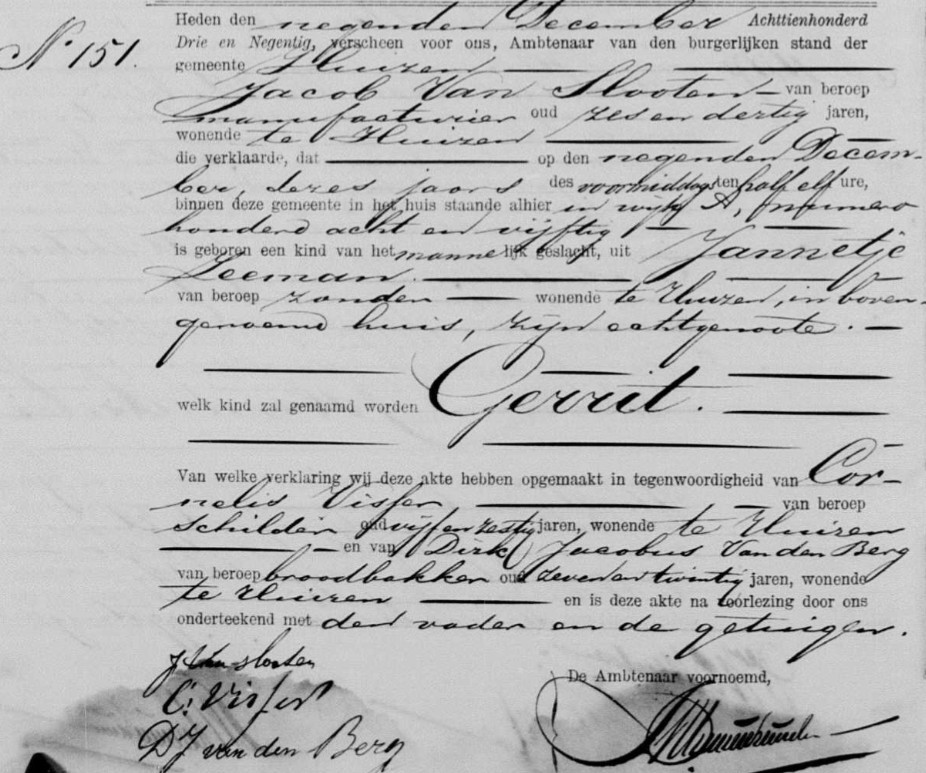 Heden den negenden December Achttienhonderd
N.º 151.
Drie en Negentig, verscheen voor ons, Ambtenaar van den burgerlijken stand der
gemeente Huizen
Jacob Van Slooten van beroep
manufacturier oud zes en dertig jaren,
wonende te Huizen
die verklaarde, dat op den negenden Decem-
ber, dezes jaars des voormiddags ten half elf ure,
binnen deze gemeente in het huis staande alhier in wijk A, nummero
honderd acht en vijftig
is geboren een kind van het mannelijk geslacht, uit Jannetje
Leeman.
van beroep zonder wonende te Huizen, in boven-
genoemd huis, zijn echtgenoote.
welk kind zal genaamd worden Gerrit.
Van welke verklaring wij deze akte hebben opgemaakt in tegenwoordigheid van Cor-
nelis Visser van beroep
schilder oud vijf en zestig jaren, wonende te Huizen
en van Dirk Jacobus Van den Berg
van beroep broodbakker oud zeven en twintig jaren, wonende
te Huizen en is deze akte na voorlezing door ons
onderteekend met den vader en de getuigen.
J Van Slooten
De Ambtenaar voornoemd,
C. Visser
DJ van den Berg